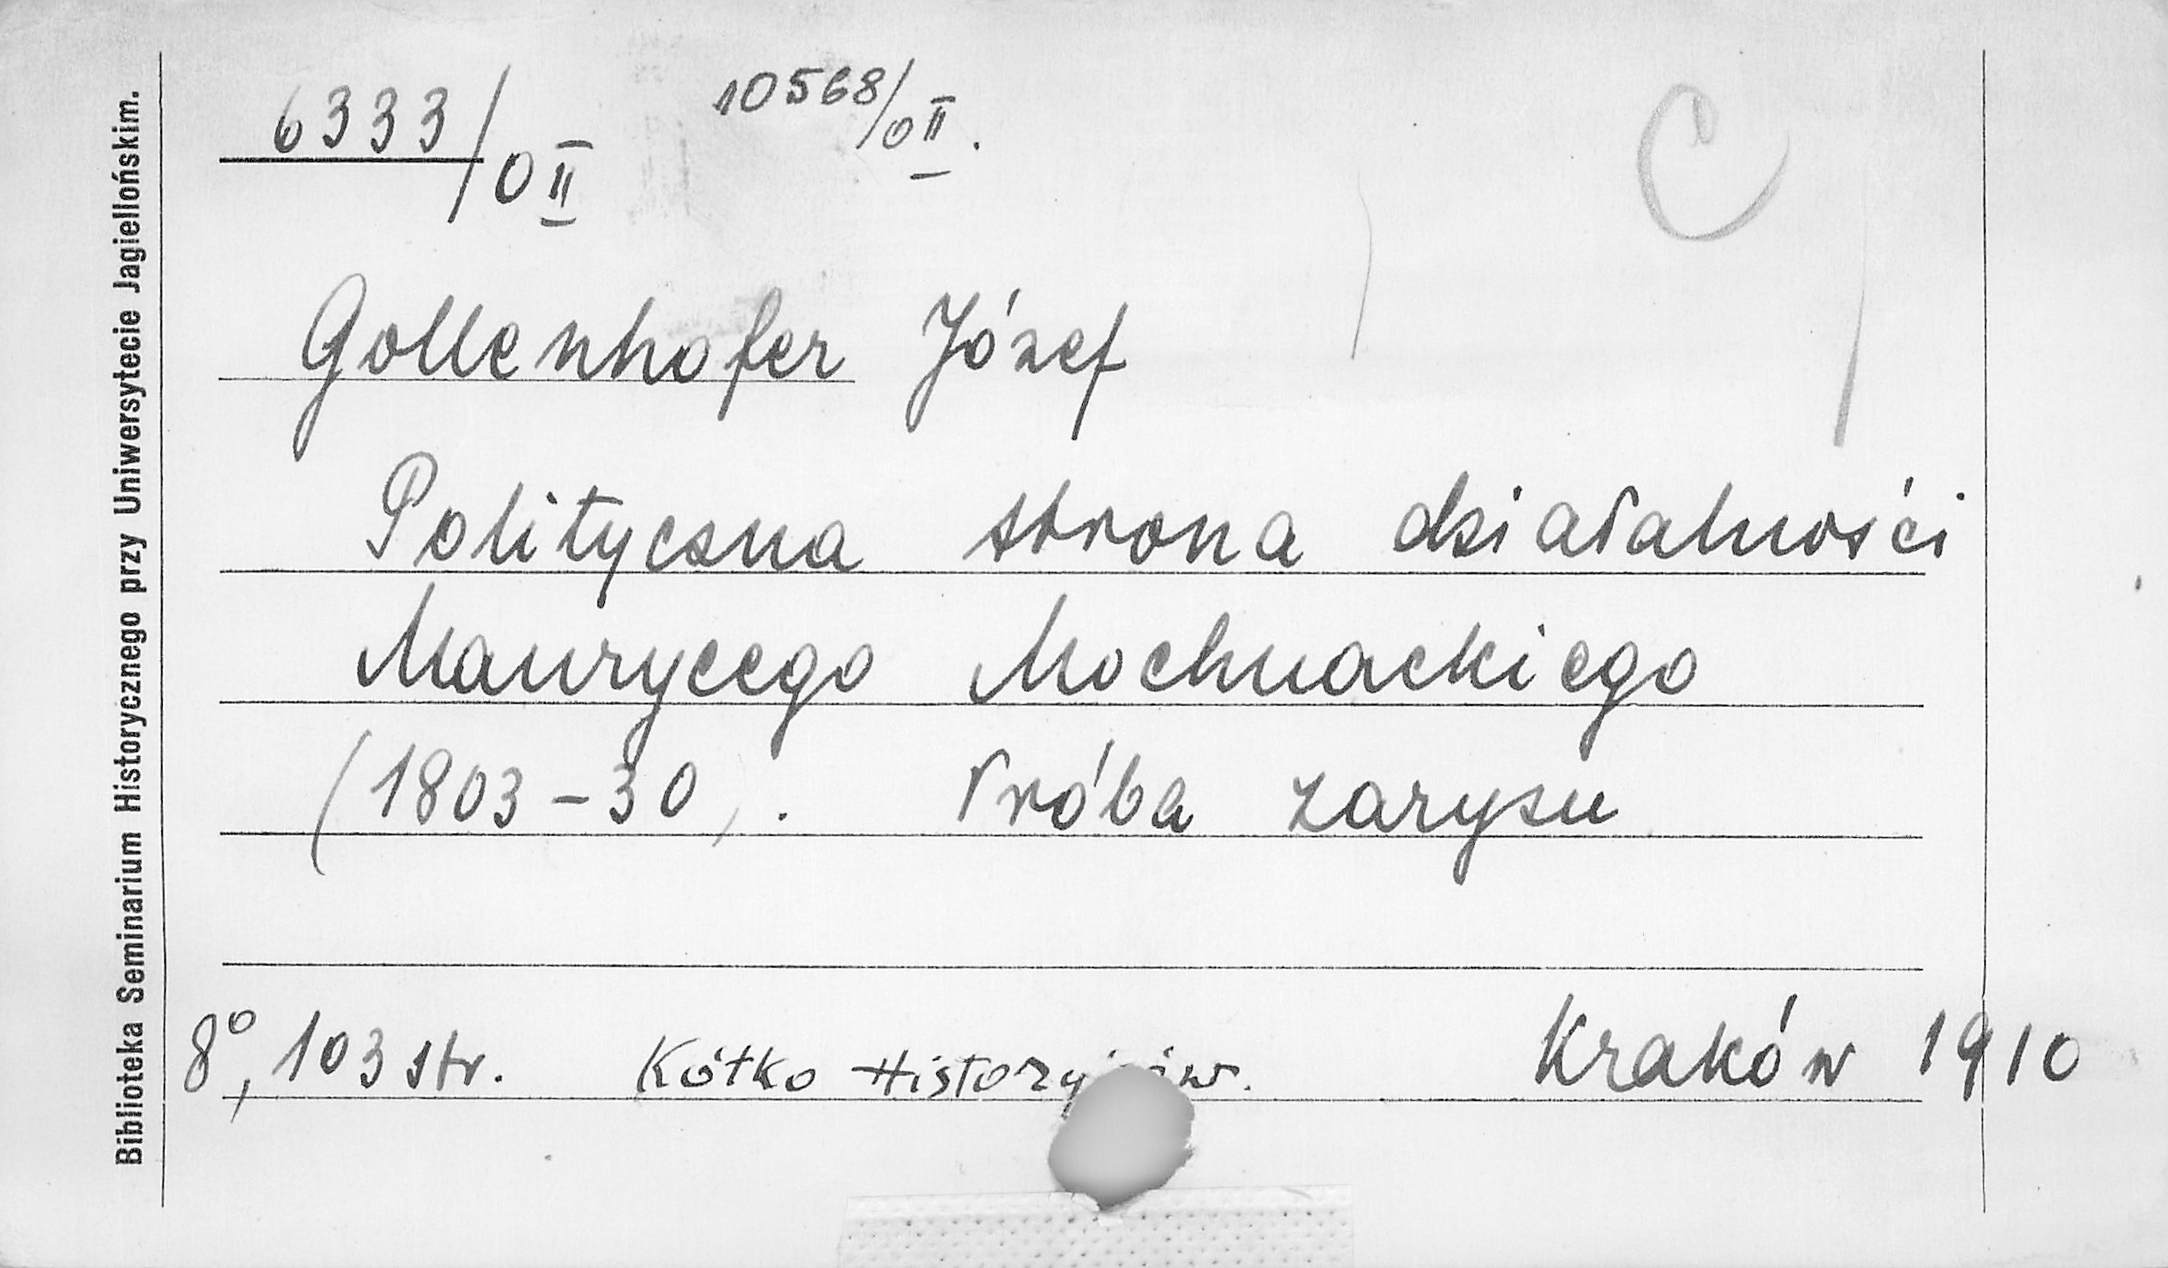 Biblioteka Seminarium Historycznego przy Uniwersytecie Jagiellońskim.
6333/O II 10568/O II.
C
Gollenhofer Józef
Polityczna strona działalności
Maurycego Mochnackiego
(1803-30). Próba zarysu
8°, 103 str. Kółko Kraków 1910